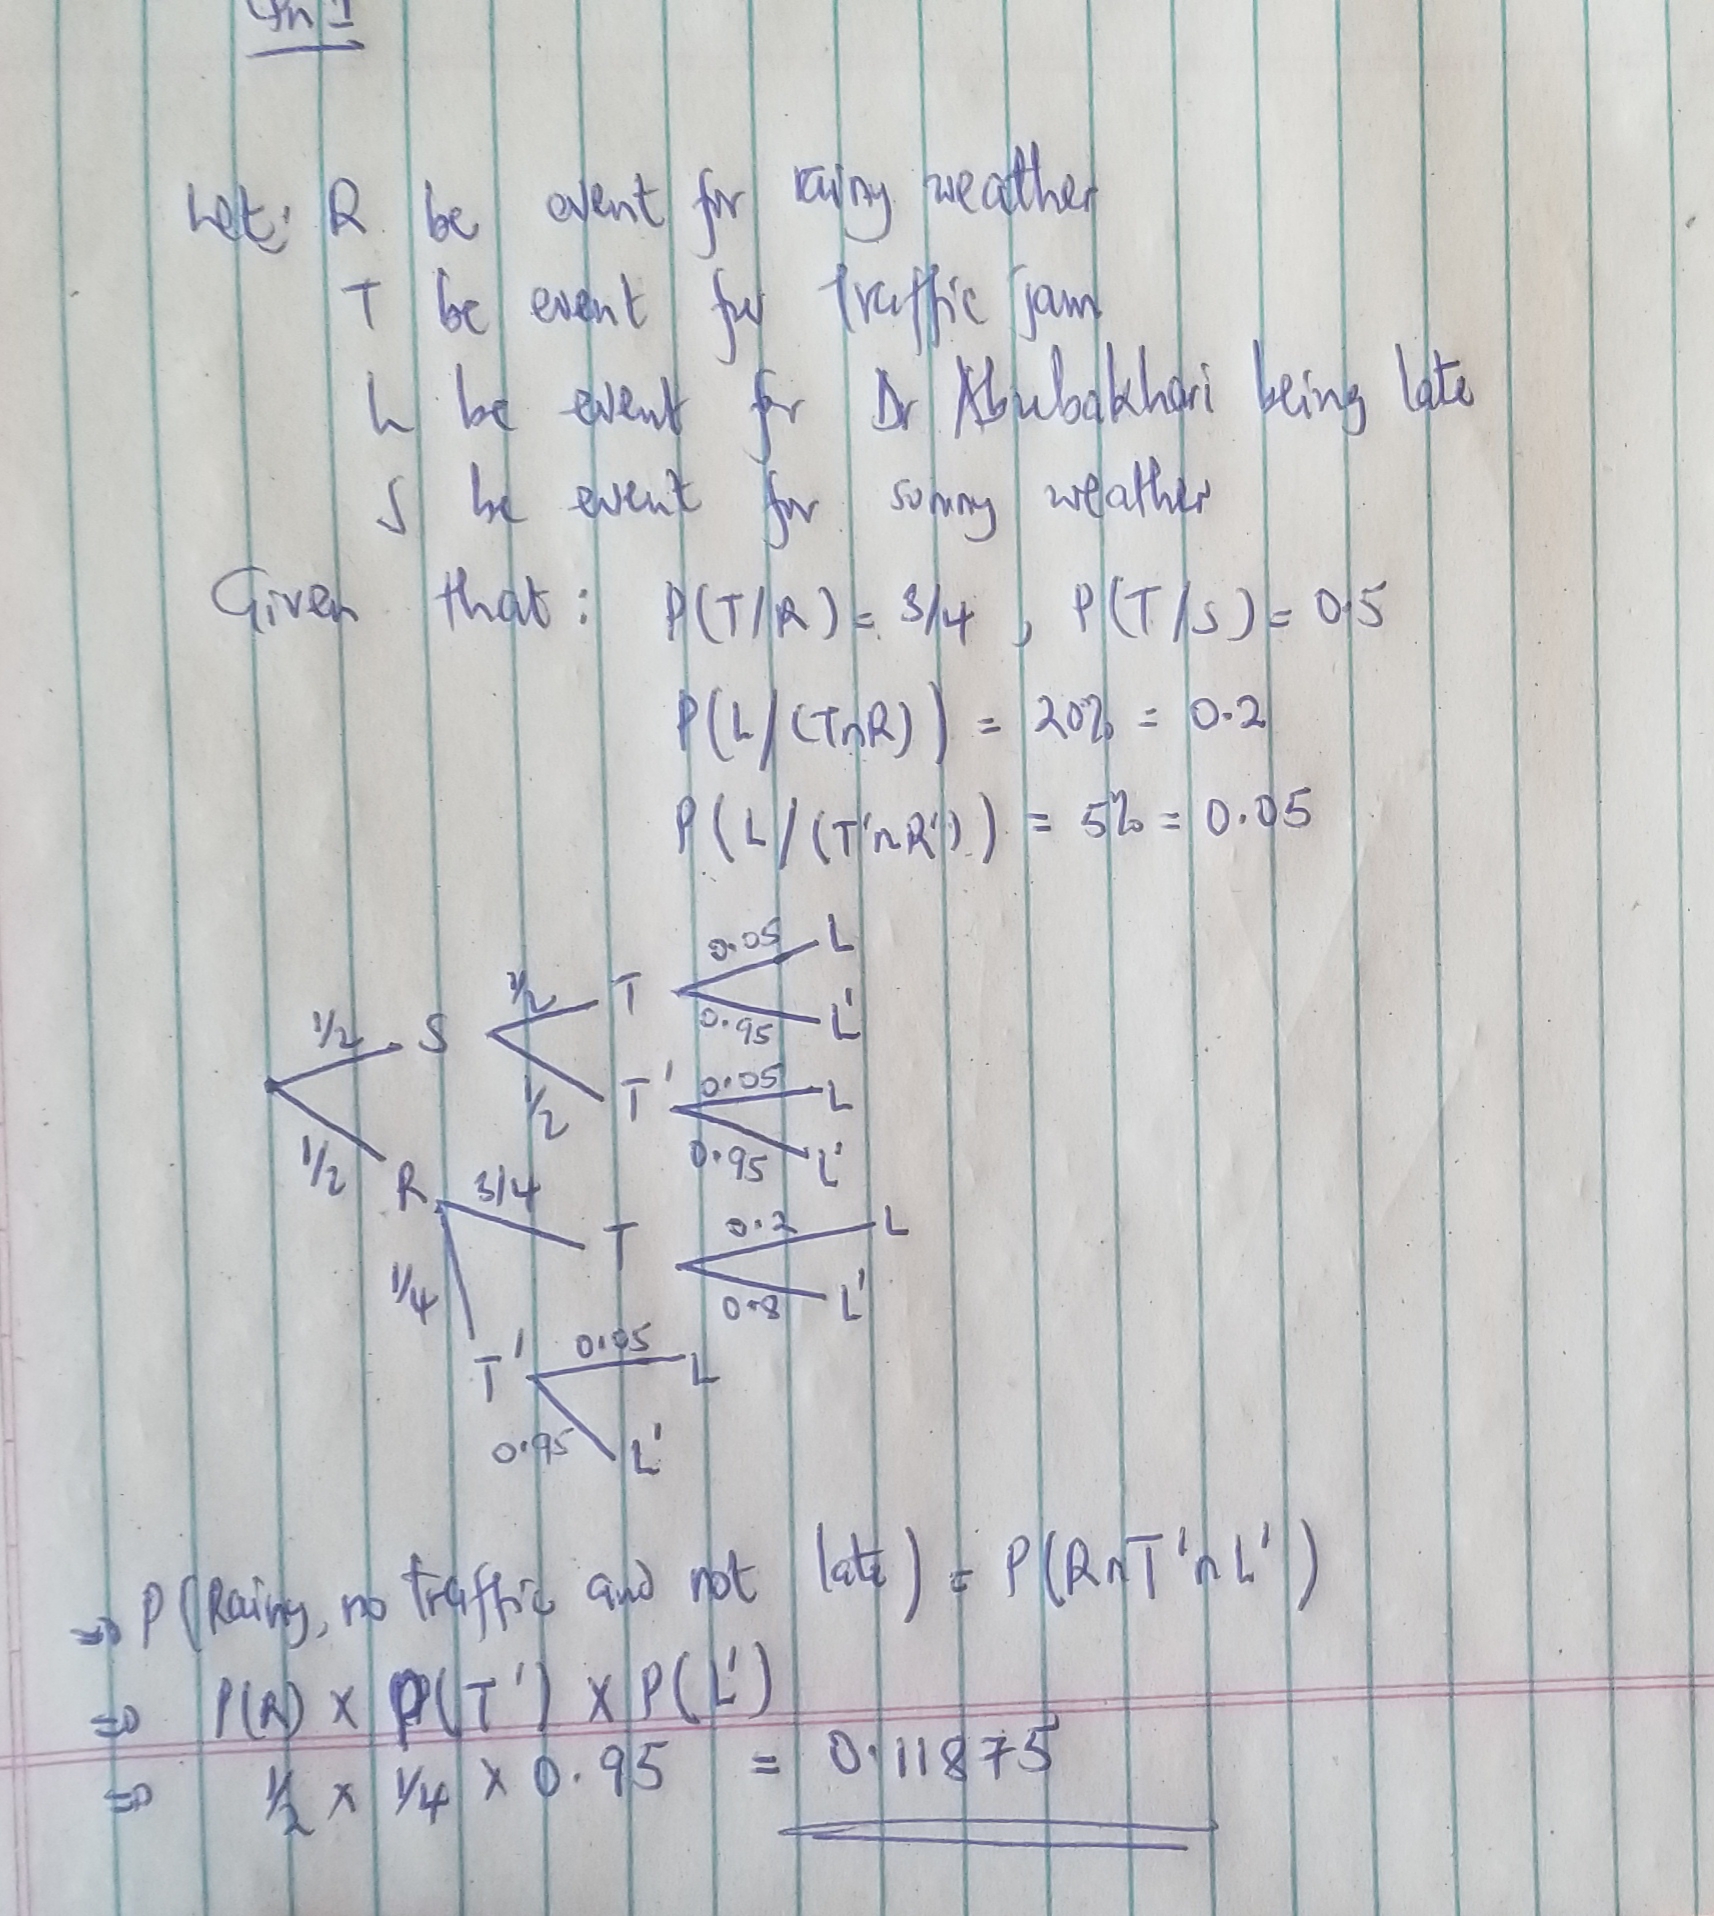 Qn 1
Let: R be event for rainy weather
T be event for traffic jam
L be event for Dr Abubakhari being late
S be event for sunny weather
Given that: P(T/R) = 3/4 , P(T/S) = 0.5
P(L/(T∩R)) = 20% = 0.2
P(L/(T'∩R')) = 5% = 0.05
0.05 L
1/2 T
0.95 L'
1/2 S
1/2 T' 0.05 L
0.95 L'
1/2 R 3/4 T 0.2 L
0.8 L'
1/4 T' 0.05 L
0.95 L'
⇒ P(Rainy, no traffic and not late) = P(R∩T'∩L')
⇒ P(R) × P(T') × P(L')
⇒ 1/2 × 1/4 × 0.95 = 0.11875